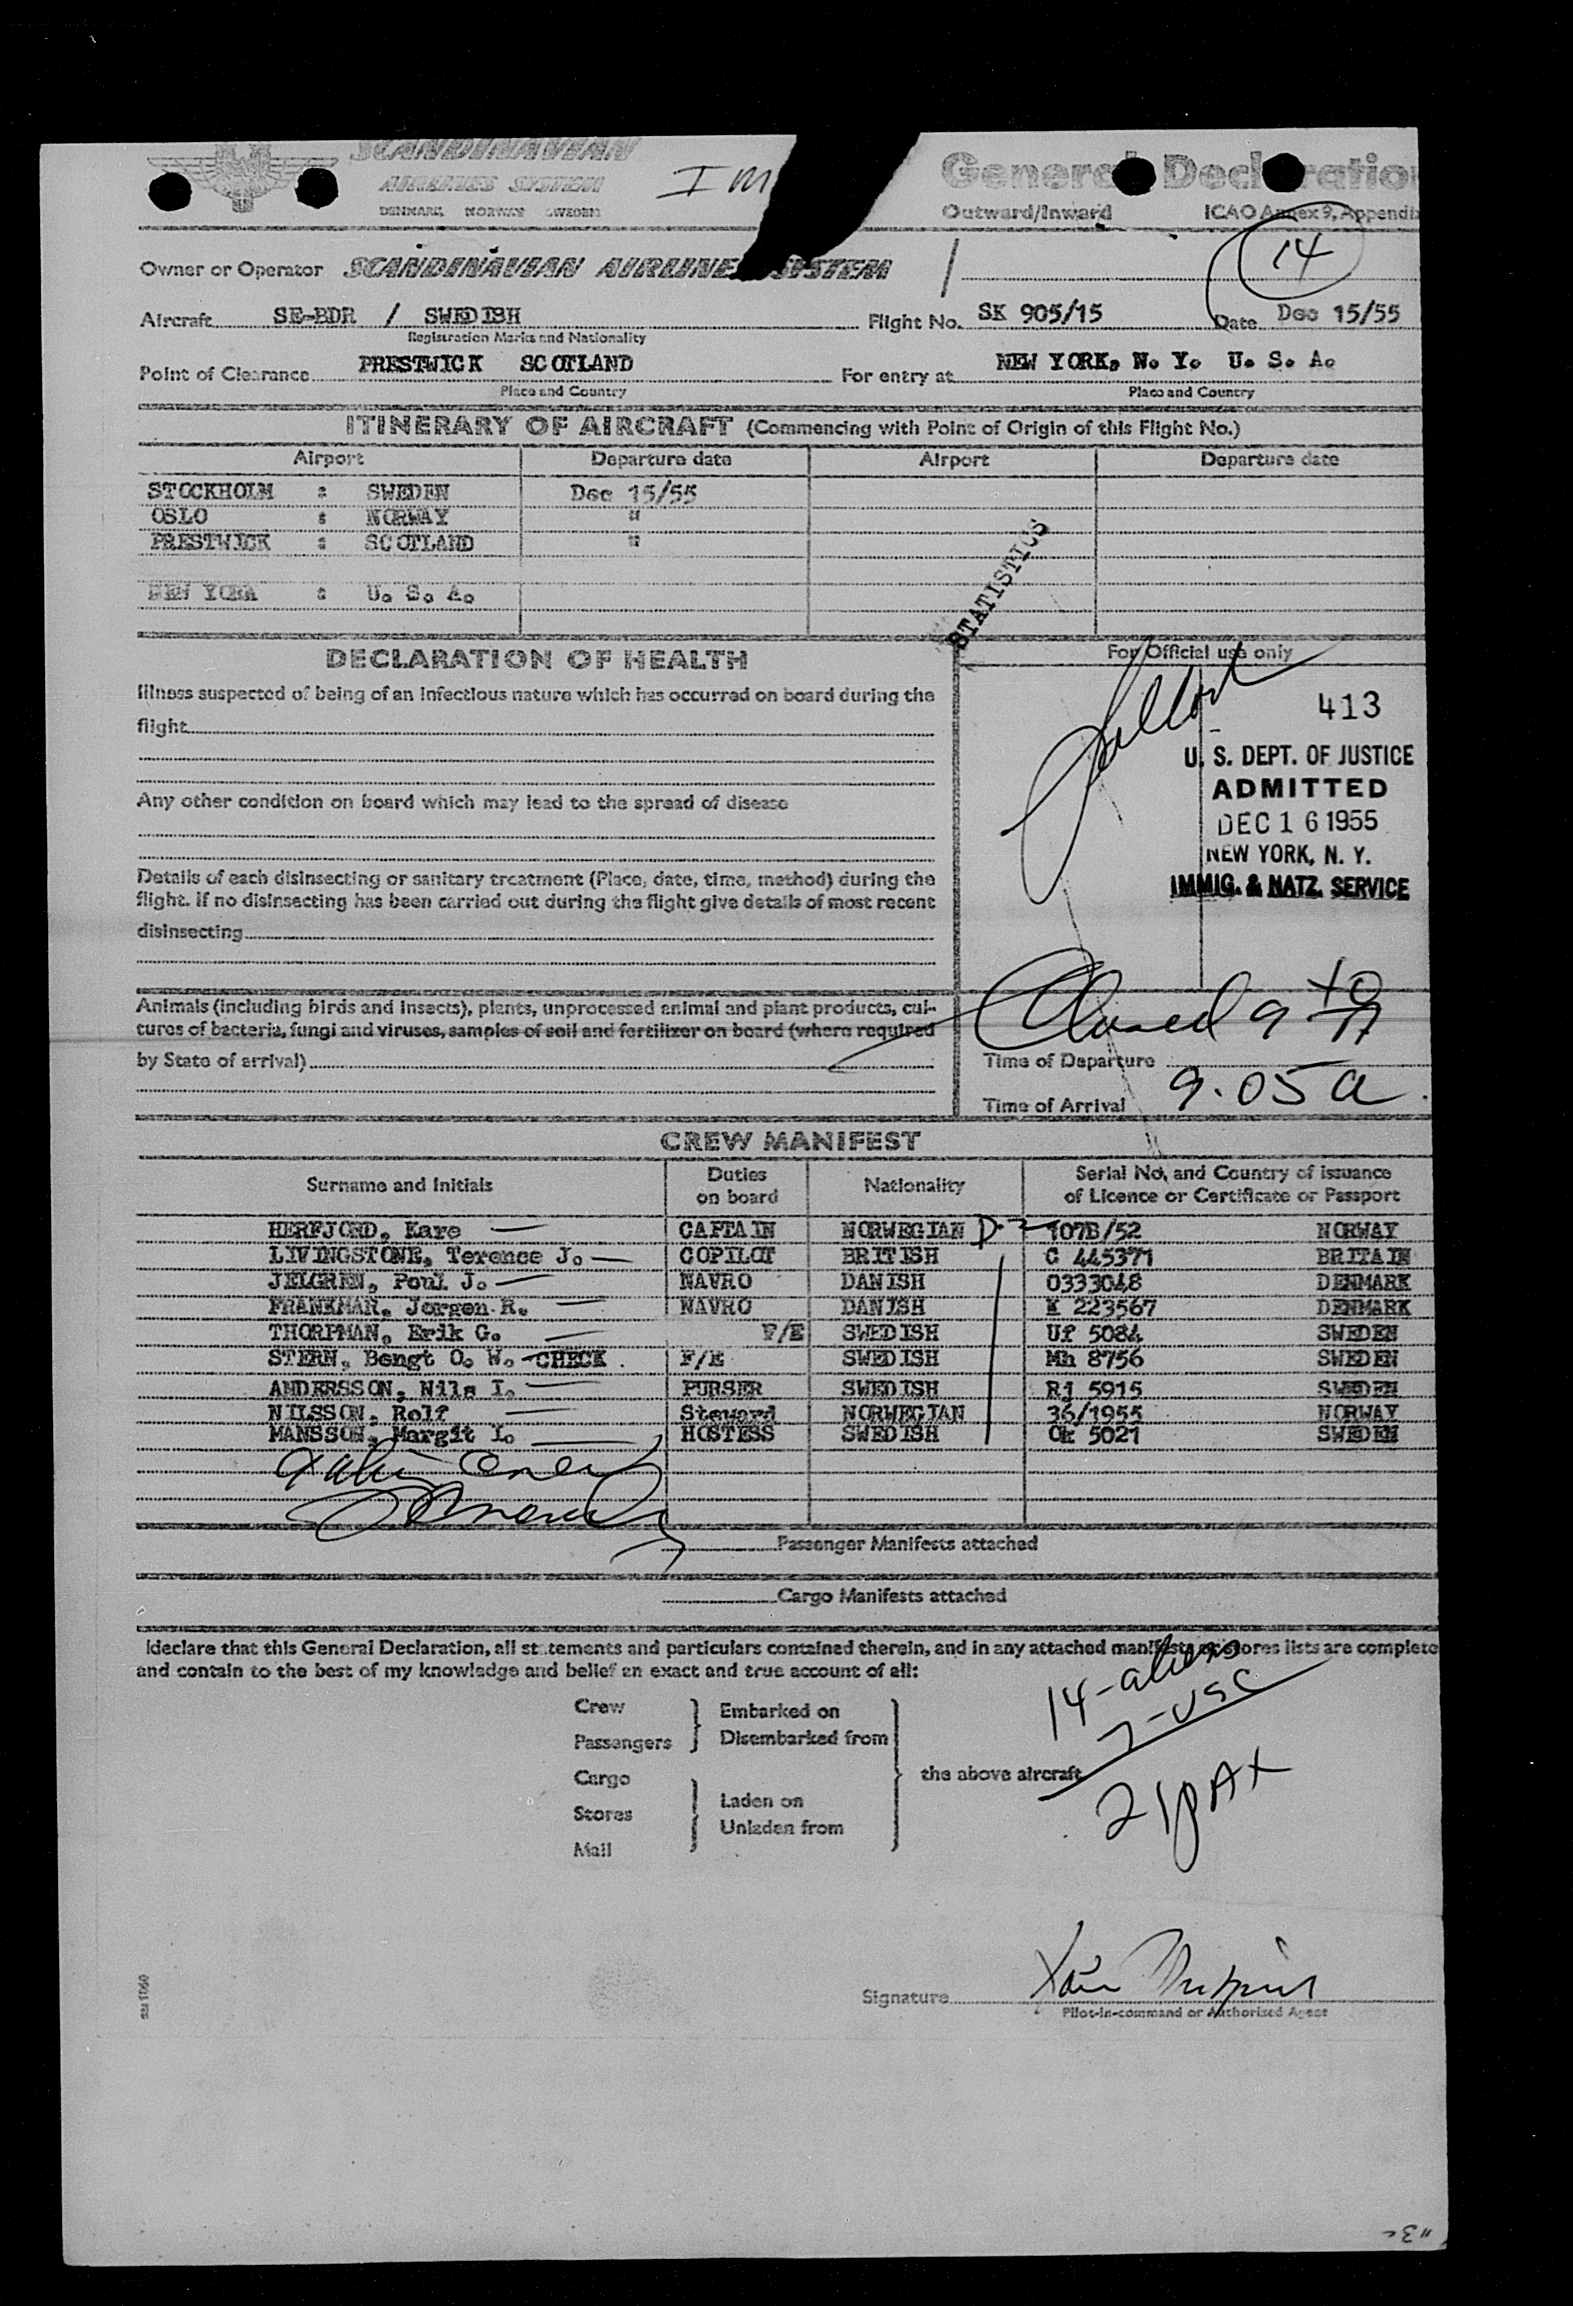 SCANDINAVIAN
AIRLINES SYSTEM
DENMARK NORWAY SWEDEN
I M
General Declaratio
Outward/Inward ICAO Annex 9, Appendix
14
Owner or Operator SCANDINAVIAN AIRLINE SYSTEM
Aircraft SE-BDR / SWEDISH Flight No. SK 905/15 Date Dec 15/55
Registration Marks and Nationality
Point of Clearance PRESTWICK SCOTLAND For entry at NEW YORK, N. Y. U. S. A.
Place and Country Place and Country
ITINERARY OF AIRCRAFT (Commencing with Point of Origin of this Flight No.)
Airport Departure date Airport Departure date
STOCKHOLM : SWEDEN Dec 15/55
OSLO : NORWAY "
PRESTWICK : SCOTLAND "
NEW YORK : U. S. A.
STATISTICS
DECLARATION OF HEALTH For Official use only
Illness suspected of being of an infectious nature which has occurred on board during the
flight
413
U. S. DEPT. OF JUSTICE
ADMITTED
DEC 16 1955
NEW YORK, N. Y.
IMMIG. & NATZ. SERVICE
Any other condition on board which may lead to the spread of disease
Details of each disinsecting or sanitary treatment (Place, date, time, method) during the
flight. If no disinsecting has been carried out during the flight give details of most recent
disinsecting
Animals (including birds and insects), plants, unprocessed animal and plant products, cul-
tures of bacteria, fungi and viruses, samples of soil and fertilizer on board (where required
by State of arrival)
Closed 9
Time of Departure
Time of Arrival 9.05 a
CREW MANIFEST
Surname and Initials Duties on board Nationality Serial No. and Country of issuance of Licence or Certificate or Passport
HERFJORD, Kare CAPTAIN NORWEGIAN D-2 107B/52 NORWAY
LIVINGSTONE, Terence J. COPILOT BRITISH C 445371 BRITAIN
JELGREN, Poul J. NAVRO DANISH 0333048 DENMARK
FRANKMAR, Jorgen R. NAVRO DANISH K 223567 DENMARK
THORPMAN, Erik G. F/E SWEDISH Uf 5084 SWEDEN
STERN, Bengt O. W. -CHECK F/E SWEDISH Mh 8756 SWEDEN
ANDERSSON, Nils I. PURSER SWEDISH Rj 5915 SWEDEN
NILSSON, Rolf Steward NORWEGIAN 36/1955 NORWAY
MANSSON, Margit I. HOSTESS SWEDISH Ok 5021 SWEDEN
Passenger Manifests attached
Cargo Manifests attached
I declare that this General Declaration, all statements and particulars contained therein, and in any attached manifests or stores lists are complete
and contain to the best of my knowledge and belief an exact and true account of all:
14-aliens
7-USC
21 PAX
Crew Embarked on
Passengers Disembarked from
Cargo the above aircraft
Stores Laden on
Unladen from
Mail
Signature
Pilot-in-command or Authorized Agent